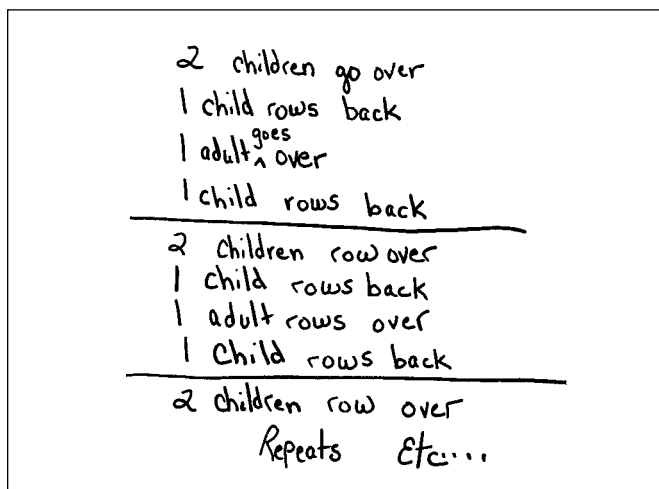 2 children go over
1 child rows back
1 adult goes over
1 child rows back
2 children row over
1 child rows back
1 adult rows over
1 Child rows back
2 children row over
Repeats Etc....